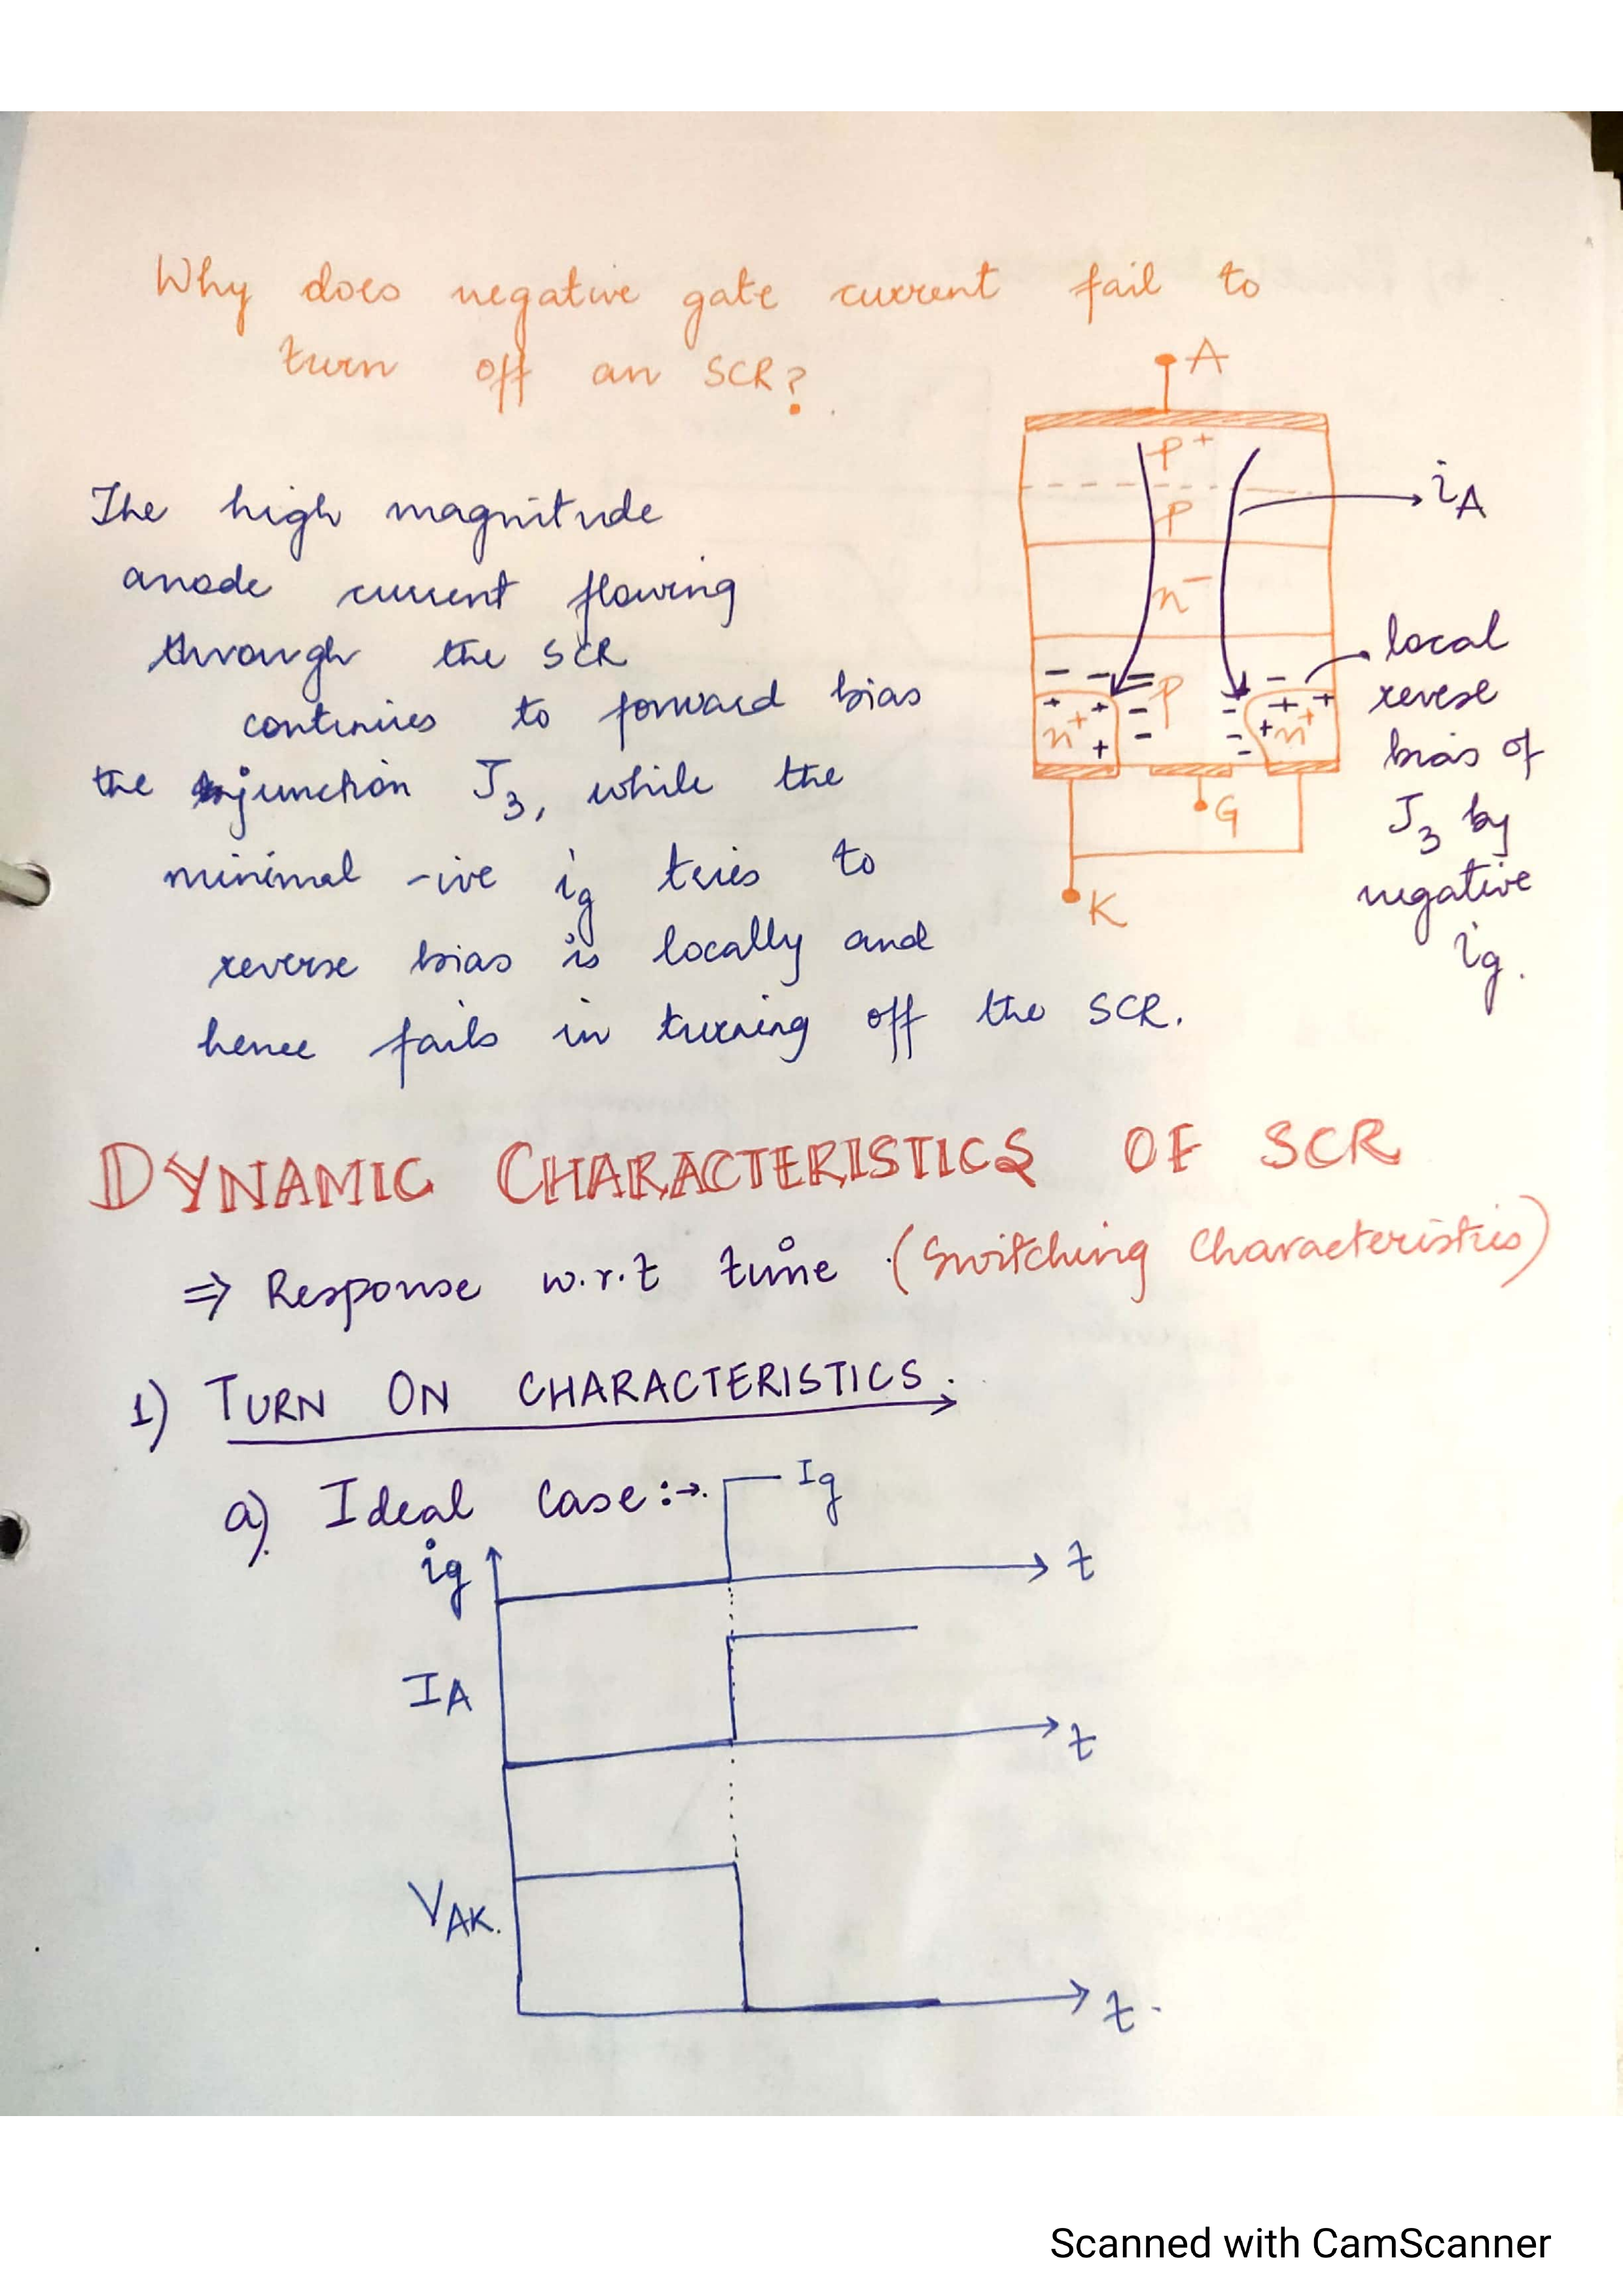 Why does negative gate current fail to
turn off an SCR?
A
P+
P
n-
iA
- - =
P
- -
+ + - + +
n+ + - - + n+
G
K
local
revese
bias of
J3 by
negative
ig.
The high magnitude
anode current flowing
through the SCR
continues to forward bias
the junction J3, while the
minimal -ive ig tries to
reverse bias is locally and
hence fails in turning off the SCR.
DYNAMIC CHARACTERISTICS OF SCR
⇒ Response w.r.t time (Switching Characteristics)
1) TURN ON CHARACTERISTICS.
a) Ideal Case:→.
Ig
ig
t
IA
t
VAK.
t.
Scanned with CamScanner